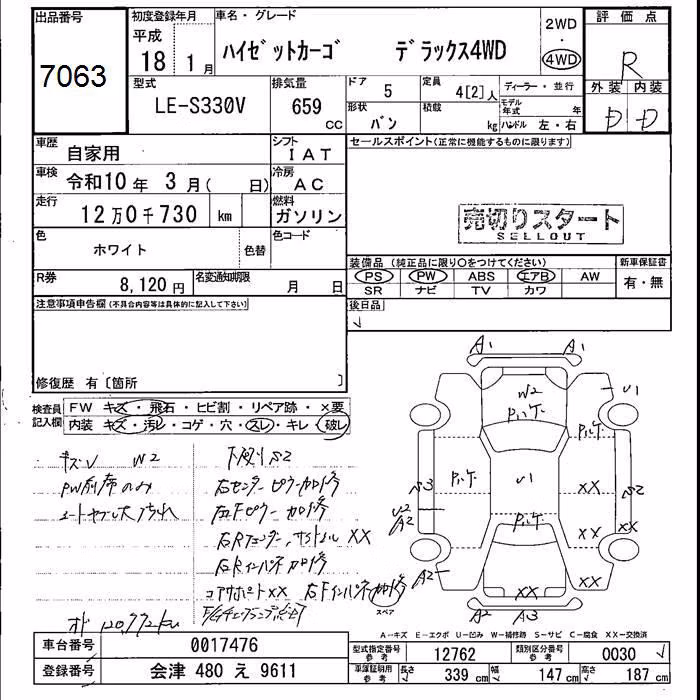 出品番号
7063
初度登録年月
平成
18年1月
車名・グレード
ハイゼットカーゴ デラックス4WD
2WD
・
4WD
評価点
R
型式
LE-S330V
排気量
659
CC
ドア
5
定員
4[2]人
ディーラー・並行
モデル年式 年
形状
バン
積載
kg
ハンドル 左・右
外装 内装
D D
車歴
自家用
シフト
IAT
車検
令和10年 3月( 日)
冷房
AC
走行
12万0千730 km
燃料
ガソリン
色
ホワイト
色替
色コード
R券
8,120円
名変通知期限
月 日
セールスポイント(正常に機能するものに限ります)
売切りスタート
SELLOUT
装備品(純正品に限り○をつけてください)
新車保証書
PS PW ABS エアB AW
SR ナビ TV カワ
有・無
後日品
注意事項申告欄(不具合内容等は具体的に記入して下さい)
修復歴 有〔箇所 〕
検査員記入欄
FW キズ・飛石・ヒビ割・リペア跡・×要
内装 キズ・汚レ・コゲ・穴・スレ・キレ・破レ
キズV W2
下廻りS2
PW前席のみ
右センターピラー加修
右Fピラー加修
XX
コアサポートXX 右Fインパネ加修
A1 A1
W2
U1
S3
U1
XX
S2
U2
A2
XX
XX
A2
XX
XX
A2 A3
スペア
A-キズ E-エクボ U-凹み W-補修跡 S-サビ C-腐食 XX-交換済
車台番号
0017476
登録番号
会津 480 え 9611
型式指定番号
参考
12762
類別区分番号
参考
0030
車庫証明用
参考
長さ
339 cm
幅
147 cm
高さ
187 cm